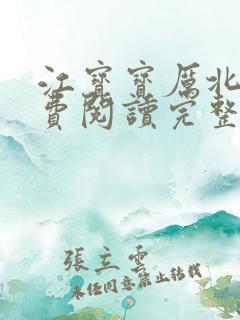 江寶寶厲北
費閱讀完整
張立雲
未經同意禁止轉載